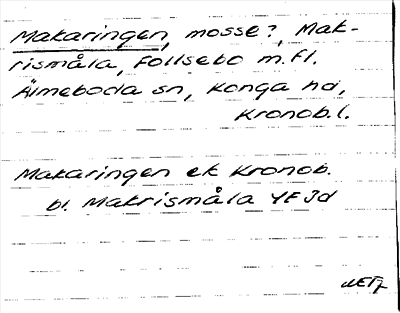 Makaringen, mosse?, Mak-
rismåla, Follsebo m.fl.
Älmeboda sn, Konga hd,
Kronob.l.
Makaringen ek Kronob.
bl. Makrismåla 4F3d